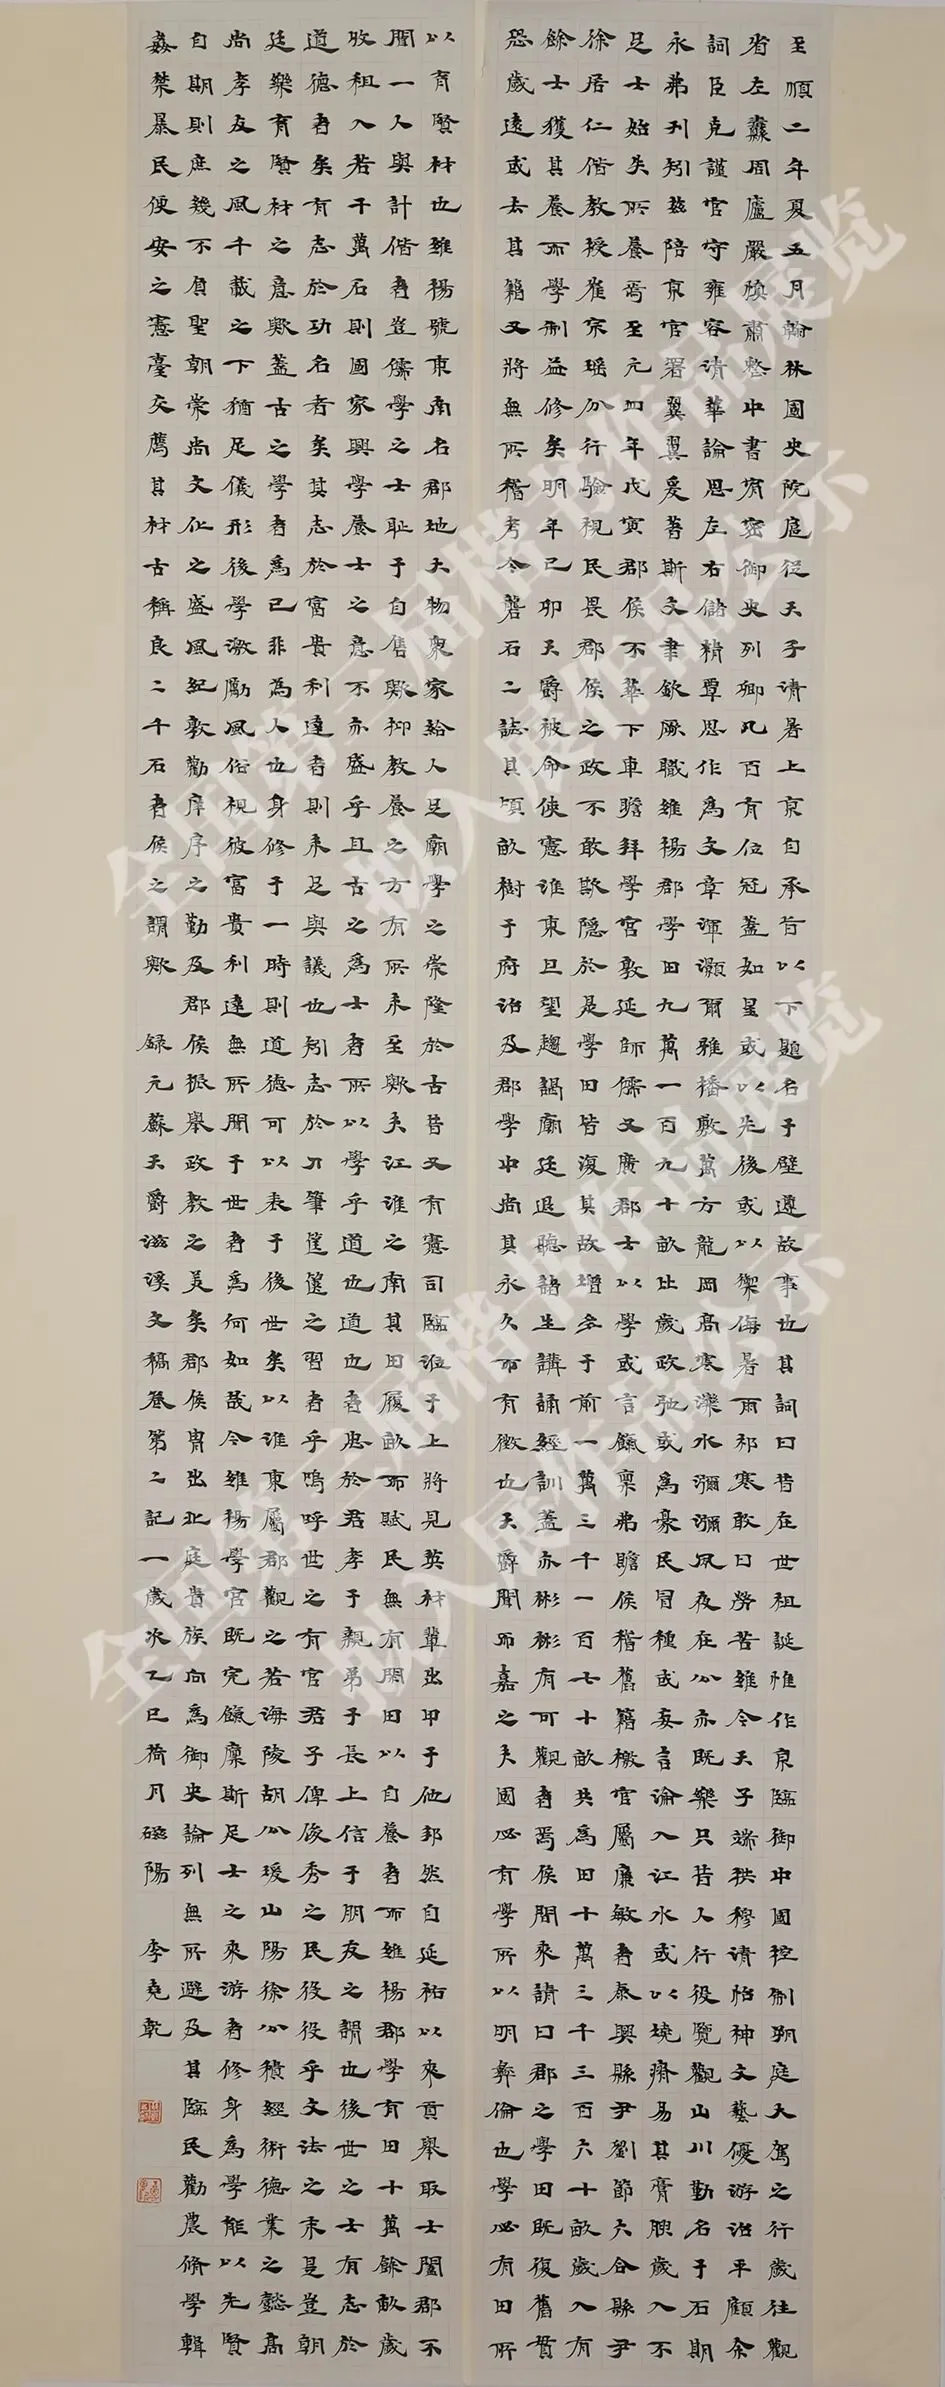 至順二年夏五月翰林國史院扈從天子清暑上京自承旨以下題名于壁遵故事也其詞曰昔在世祖誕惟作京臨御中國控制朔庭大駕之行歲往觀
省左纛周廬嚴煥肅整中書宥密御史列卿凡百有位冠蓋如星或以先後或以禦侮暑雨祁寒敢曰勞苦維今天子端拱穆清怡神文藝優游治平顧余
詞臣克謹官守雍容清華論思左右儲精覃思作為文章渾灝爾雅播敷萬方龍岡高寒灤水瀰瀰夙夜在公亦既樂只昔人行役覽觀山川勤名于石期
永弗刊矧茲陪京官署翼翼爰著斯文聿欽厥職維揚郡學田九萬一百九十畝比歲政弛或為豪民冒種或妄言淪入江水或以墝瘠易其膏腴歲入不
足士始失所養焉至元四年戊寅郡侯不華下車瞻拜學宮敦延師儒又廣郡士以學或言餼稟弗贍侯稽舊籍檄官屬廉敏者泰興縣尹劉節六合縣尹
徐居仁偕教授崔宗瑶分行驗視民畏郡侯之政不敢欺隱於是學田皆復其故增多于前一萬三千一百七十畝共為田十萬三千三百六十畝歲入有
餘士獲其養而學制益修矣明年己卯天爵被命使憲淮東旦望趨謁廟廷退聽諸生講誦經訓蓋亦彬彬有可觀者焉侯間來請曰郡之學田既復舊貫
恐歲遠或去其籍又將無所稽考今礱石二誌其頃畝樹于府治及郡學中尚其永久而有徵也天爵聞而嘉之夫國必有學所以明彝倫也學必有田所
以育賢材也維揚號東南名郡地大物衆家給人足廟學之崇隆於古昔又有憲司臨涖于上將見英材輩出甲于他邦然自延祐以來貢舉取士闔郡不
聞一人與計偕者豈儒學之士耻于自售歟抑教養之方有所未至歟夫江淮之南其田履畝而賦民無有閒田以自養者而維揚郡學有田十萬餘畝歲
收租入若干萬石則國家興學養士之意不亦盛乎且古之為士者所以學乎道也道也者忠於君孝于親弟于長上信于朋友之謂也後世之士有志於
道德者矣有志於功名者矣其志於富貴利達者則未足與議也矧志於刀筆筐篋之習者乎嗚呼世之有官君子俾俊秀之民役役乎文法之末是豈朝
廷樂育賢材之意歟蓋古之學者為己非為人也身修于一時則道德可以表于後世矣以淮東屬郡觀之若海陵胡公瑗山陽徐公積經術德業之懿高
尚孝友之風千載之下猶足儀形後學激勵風俗視彼富貴利達無所聞于世者為何如哉今維揚學官既完餼廩斯足士之來游者修身為學能以先賢
自期則庶幾不負聖朝崇尚文化之盛風紀敦勸庠序之勤及郡侯振舉政教之美矣郡侯胄出北庭貴族向為御史論列無所避及其臨民勸農脩學輯
姦禁暴民便安之憲臺交薦其材古稱良二千石者侯之謂歟 錄元蘇天爵滋溪文稿卷第二記一歲次乙巳荷月磁陽 李堯乾
全国第三届楷书作品展览
拟入展作品公示
全国第三届楷书作品展览
拟入展作品公示